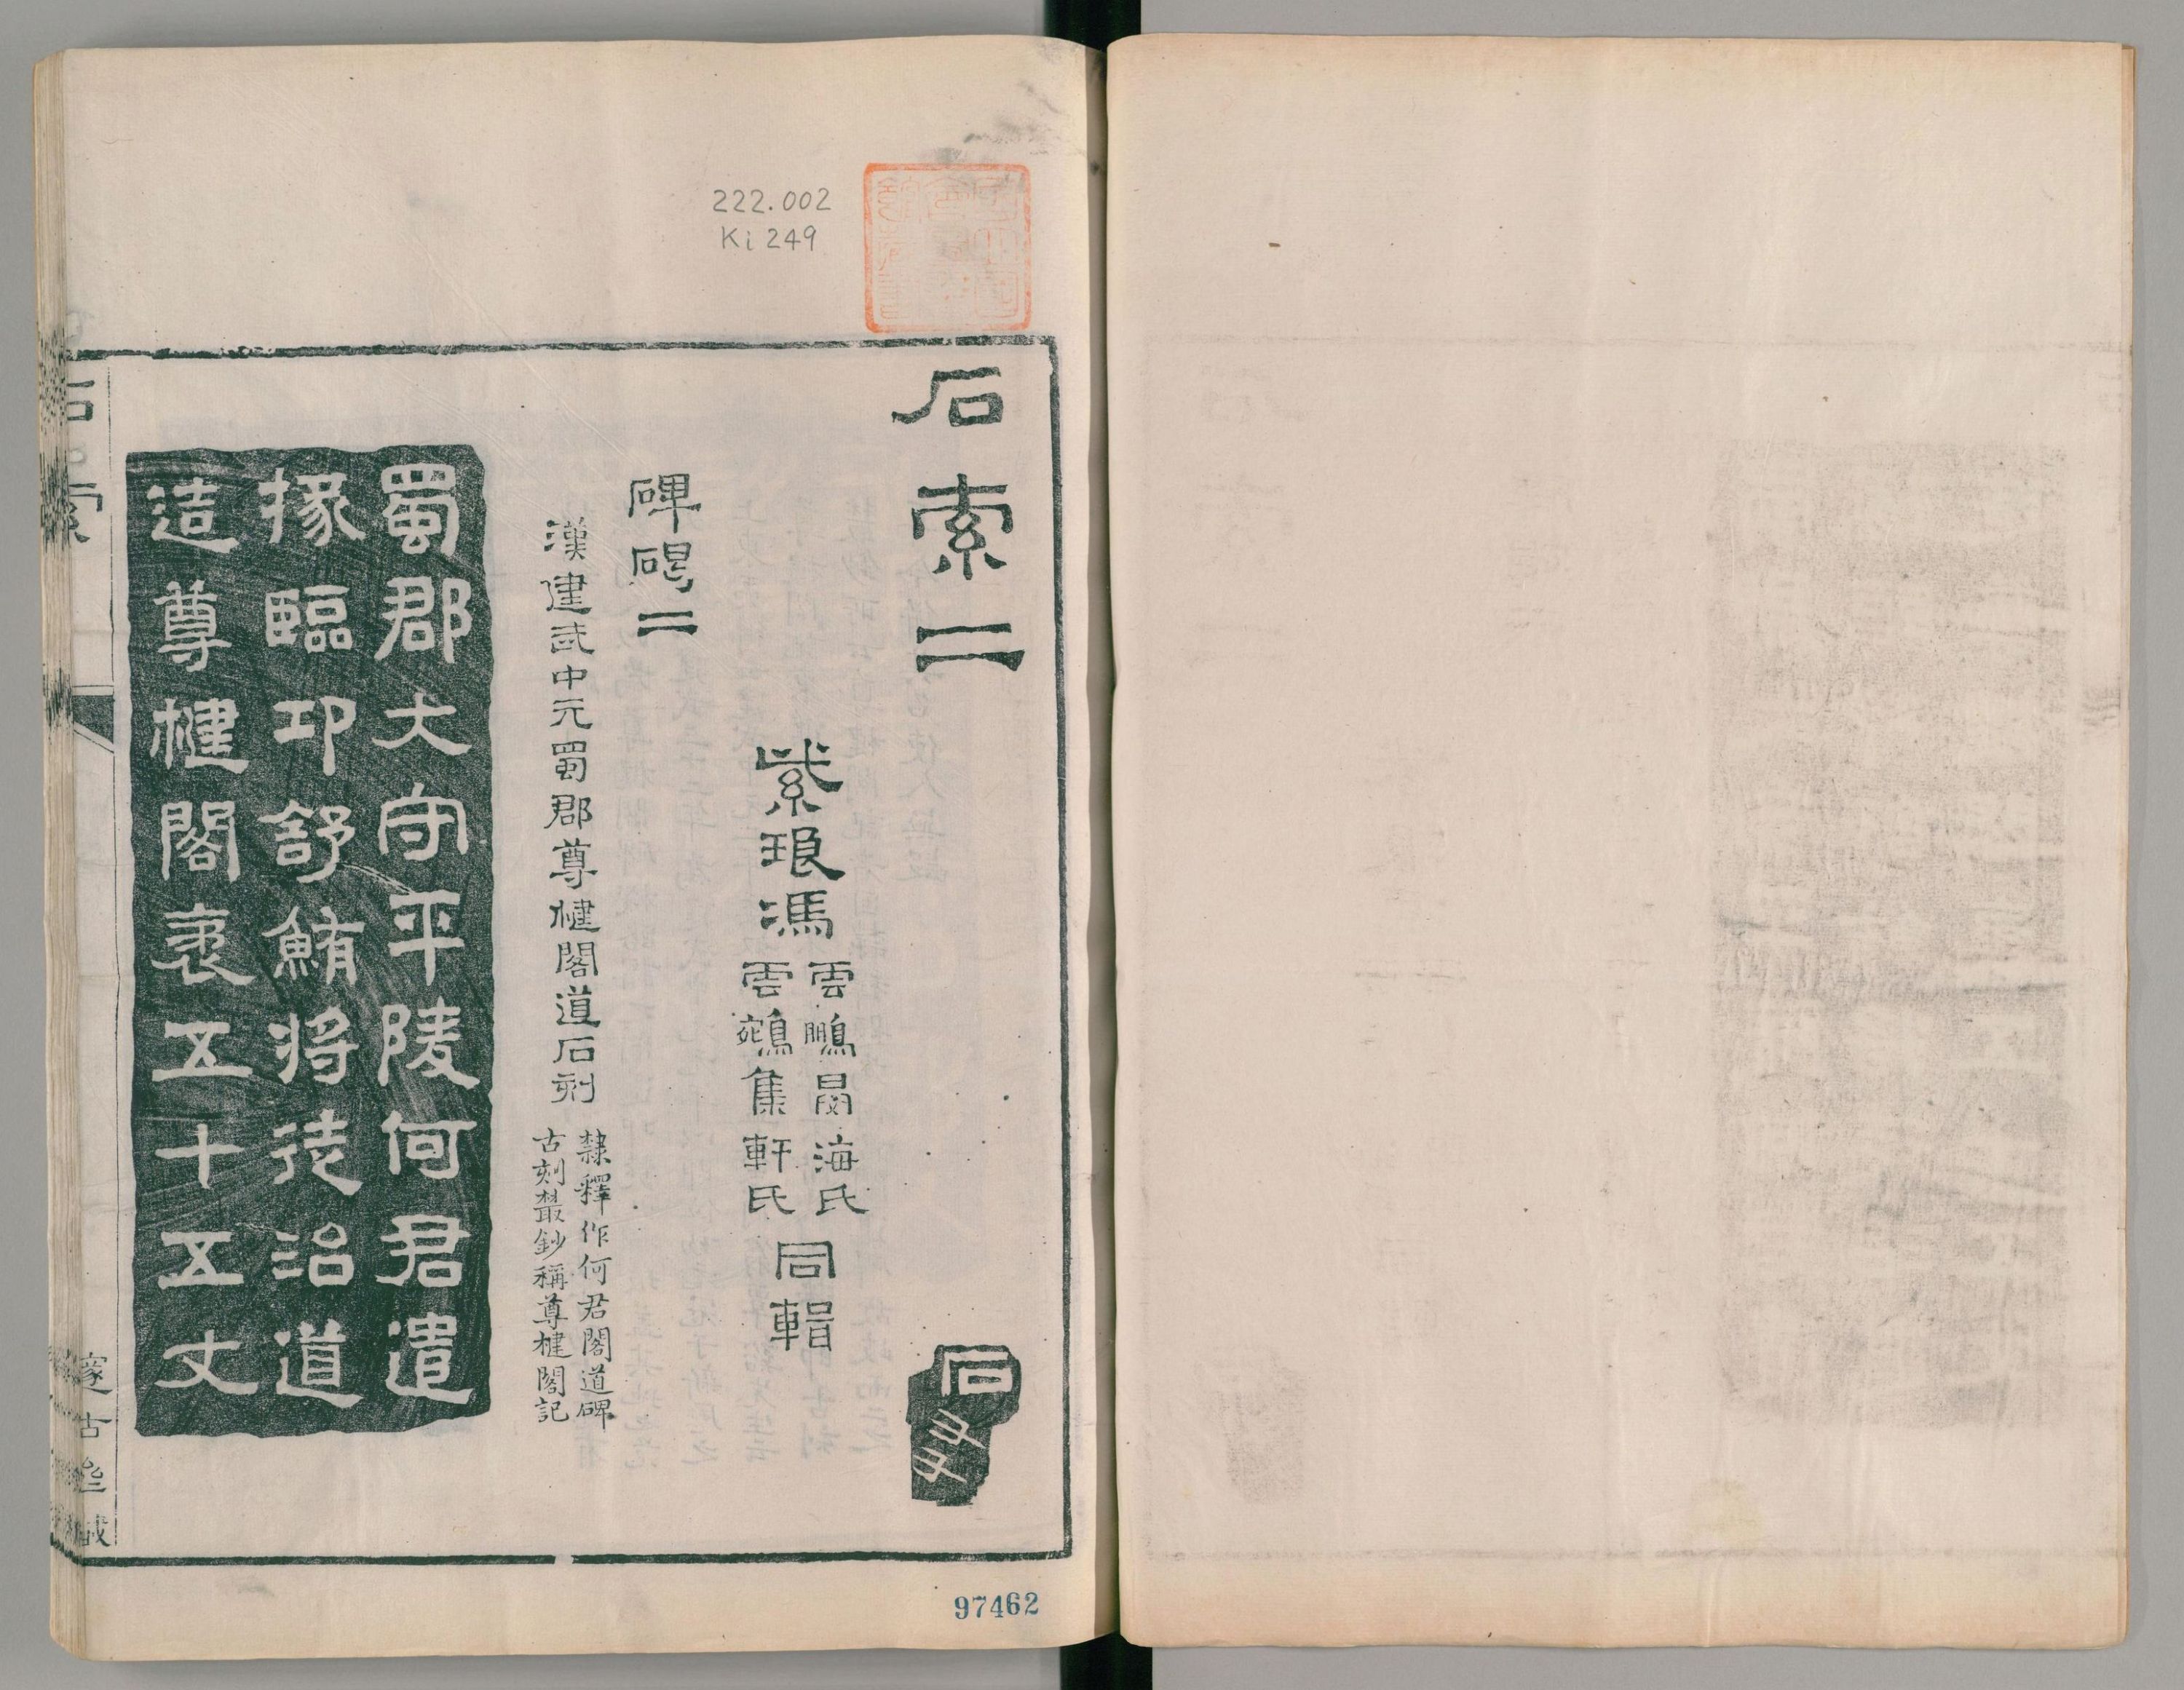 222.002
Ki 249
石索二
紫琅馮
雲鵬晏海氏
雲鵷集軒氏
同輯
碑碣二
漢建武中元蜀郡尊楗閣道石刻
隸釋作何君閣道碑
古刻叢鈔稱尊楗閣記
蜀郡大守平陵何君遣
掾臨邛舒鮪將徒治道
造尊楗閣袤五十五丈
石索
邃古齋藏
97462